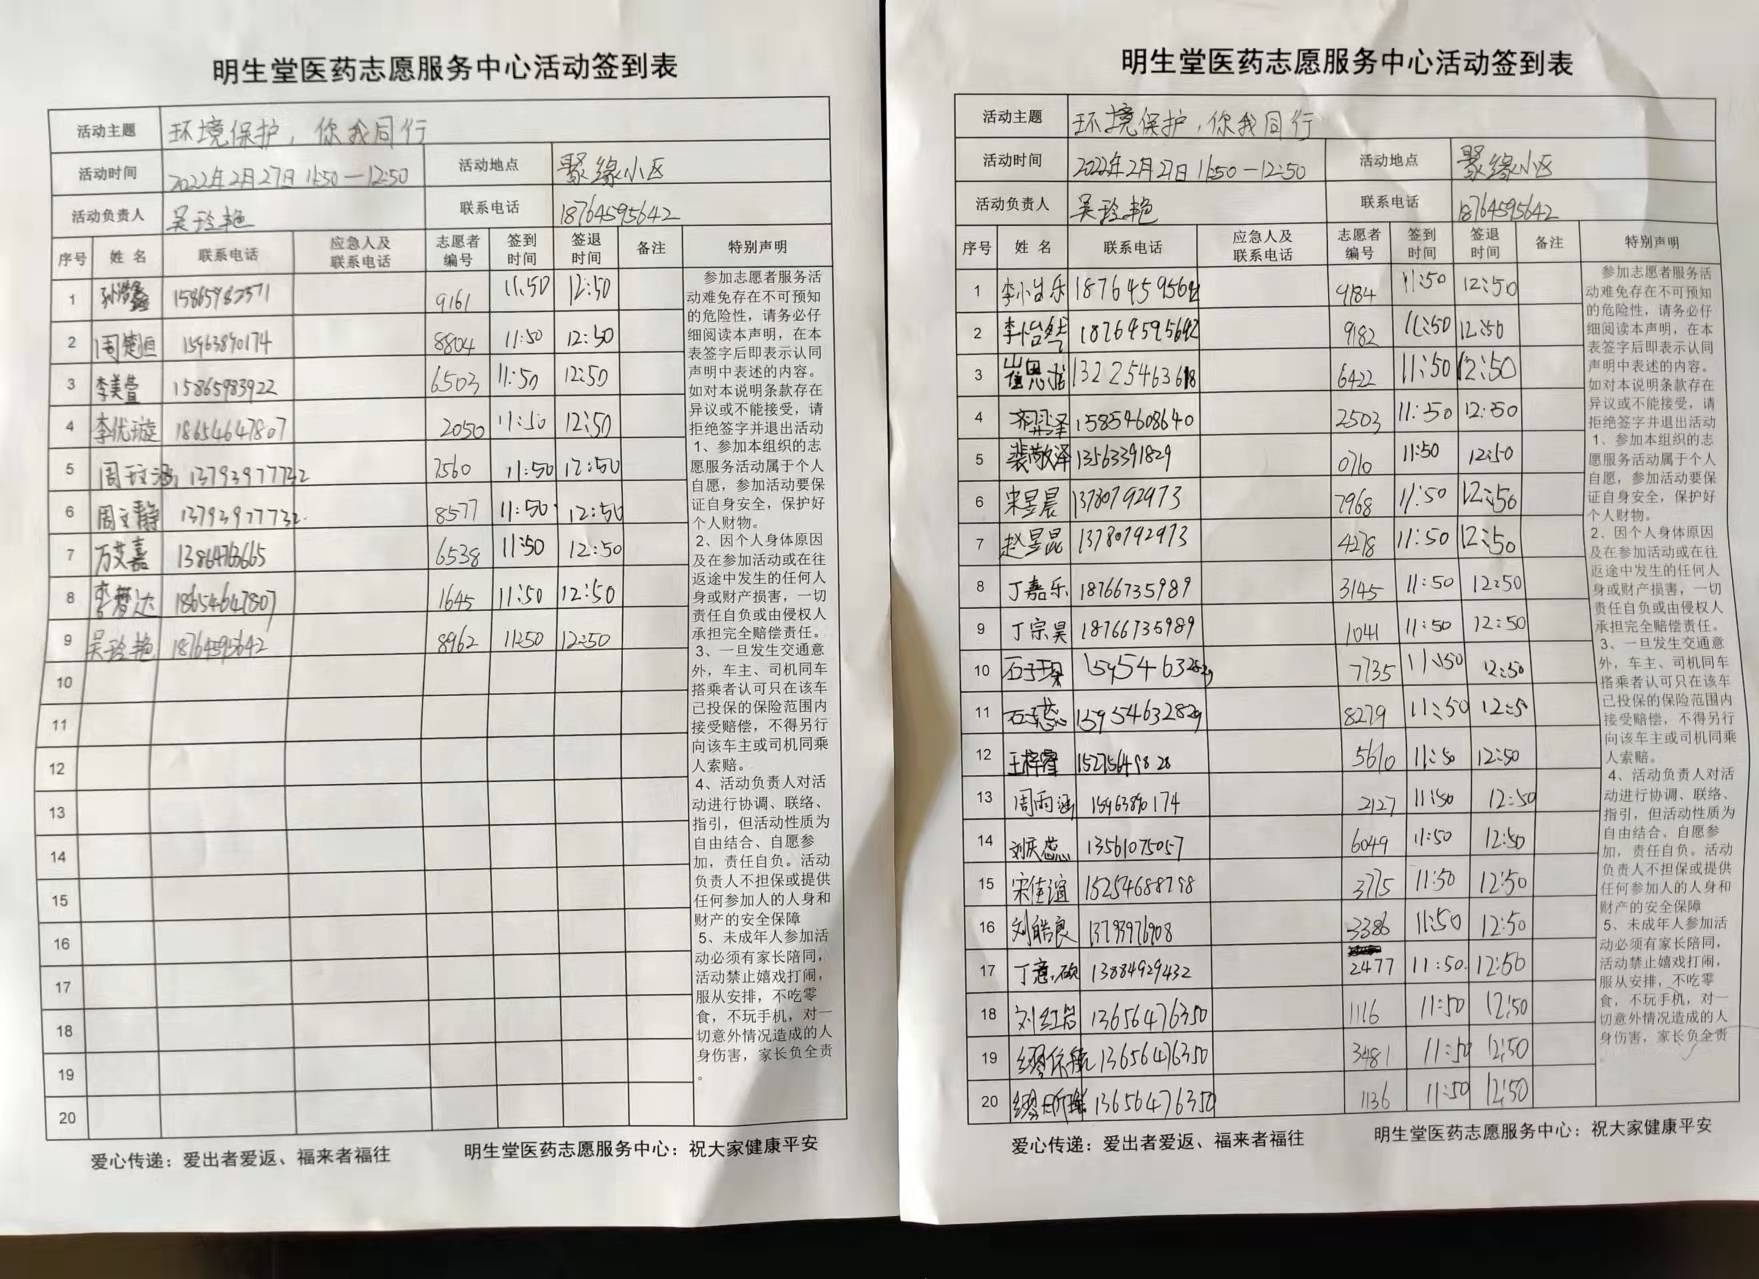 明生堂医药志愿服务中心活动签到表
活动主题 环境保护，你我同行
活动时间 2022年2月27日 11:50—12:50 活动地点 聚缘小区
活动负责人 吴玲艳 联系电话 18764595642
序号 姓 名 联系电话 应急人及联系电话 志愿者编号 签到时间 签退时间 备注 特别声明
1 9161 11:50 12:50
2 周楚恒 15963890174 8804 11:50 12:50
3 李美萱 15865983922 6503 11:50 12:50
4 李优璇 18654647807 2050 11:50 12:50
5 13793977732 7560 11:50 12:50
6 周文静 13793977732 8577 11:50 12:50
7 万艾嘉 13864763665 6538 11:50 12:50
8 李梦达 18654647807 1645 11:50 12:50
9 吴玲艳 18764595642 8962 11:50 12:50
10
11
12
13
14
15
16
17
18
19
20
参加志愿者服务活
动难免存在不可预知
的危险性，请务必仔
细阅读本声明，在本
表签字后即表示认同
声明中表述的内容。
如对本说明条款存在
异议或不能接受，请
拒绝签字并退出活动
1、参加本组织的志
愿服务活动属于个人
自愿，参加活动要保
证自身安全，保护好
个人财物。
2、因个人身体原因
及在参加活动或在往
返途中发生的任何人
身或财产损害，一切
责任自负或由侵权人
承担完全赔偿责任。
3、一旦发生交通意
外，车主、司机同车
搭乘者认可只在该车
已投保的保险范围内
接受赔偿，不得另行
向该车主或司机同乘
人索赔。
4、活动负责人对活
动进行协调、联络、
指引，但活动性质为
自由结合、自愿参
加，责任自负。活动
负责人不担保或提供
任何参加人的人身和
财产的安全保障
5、未成年人参加活
动必须有家长陪同，
活动禁止嬉戏打闹，
服从安排，不吃零
食，不玩手机，对一
切意外情况造成的人
身伤害，家长负全责
。
爱心传递：爱出者爱返、福来者福往 明生堂医药志愿服务中心：祝大家健康平安
明生堂医药志愿服务中心活动签到表
活动主题 环境保护，你我同行
活动时间 2022年2月27日 11:50—12:50 活动地点 聚缘小区
活动负责人 吴玲艳 联系电话 18764595642
序号 姓 名 联系电话 应急人及联系电话 志愿者编号 签到时间 签退时间 备注 特别声明
1 18764595642 9184 11:50 12:50
2 18764595642 9182 11:50 12:50
3 崔思诺 13225463618 6422 11:50 12:50
4 15854608640 2503 11:50 12:50
5 裴敬泽 13563391829 0710 11:50 12:50
6 宋昱晨 13780792973 7968 11:50 12:50
7 赵昱昆 13780792973 4278 11:50 12:50
8 丁嘉乐 18766735989 3145 11:50 12:50
9 丁宗昊 18766735989 1041 11:50 12:50
10 15954632829 7735 11:50 12:50
11 15954632829 8279 11:50 12:50
12 王梓睿 5610 11:50 12:50
13 周雨涵 15963890174 2127 11:50 12:50
14 刘庆蕊 13561075057 6049 11:50 12:50
15 宋佳谊 15254688798 3775 11:50 12:50
16 刘皓良 13793976908 3386 11:50 12:50
17 丁意硕 13884929432 2477 11:50 12:50
18 刘红岩 13656476350 1116 11:50 12:50
19 13656476350 3481 11:50 12:50
20 13656476350 1136 11:50 12:50
参加志愿者服务活
动难免存在不可预知
的危险性，请务必仔
细阅读本声明，在本
表签字后即表示认同
声明中表述的内容。
如对本说明条款存在
异议或不能接受，请
拒绝签字并退出活动
1、参加本组织的志
愿服务活动属于个人
自愿，参加活动要保
证自身安全，保护好
个人财物。
2、因个人身体原因
及在参加活动或在往
返途中发生的任何人
身或财产损害，一切
责任自负或由侵权人
承担完全赔偿责任。
3、一旦发生交通意
外，车主、司机同车
搭乘者认可只在该车
已投保的保险范围内
接受赔偿，不得另行
向该车主或司机同乘
人索赔。
4、活动负责人对活
动进行协调、联络、
指引，但活动性质为
自由结合、自愿参
加，责任自负。活动
负责人不担保或提供
任何参加人的人身和
财产的安全保障
5、未成年人参加活
动必须有家长陪同，
活动禁止嬉戏打闹，
服从安排，不吃零
食，不玩手机，对一
切意外情况造成的人
身伤害，家长负全责
。
爱心传递：爱出者爱返、福来者福往 明生堂医药志愿服务中心：祝大家健康平安